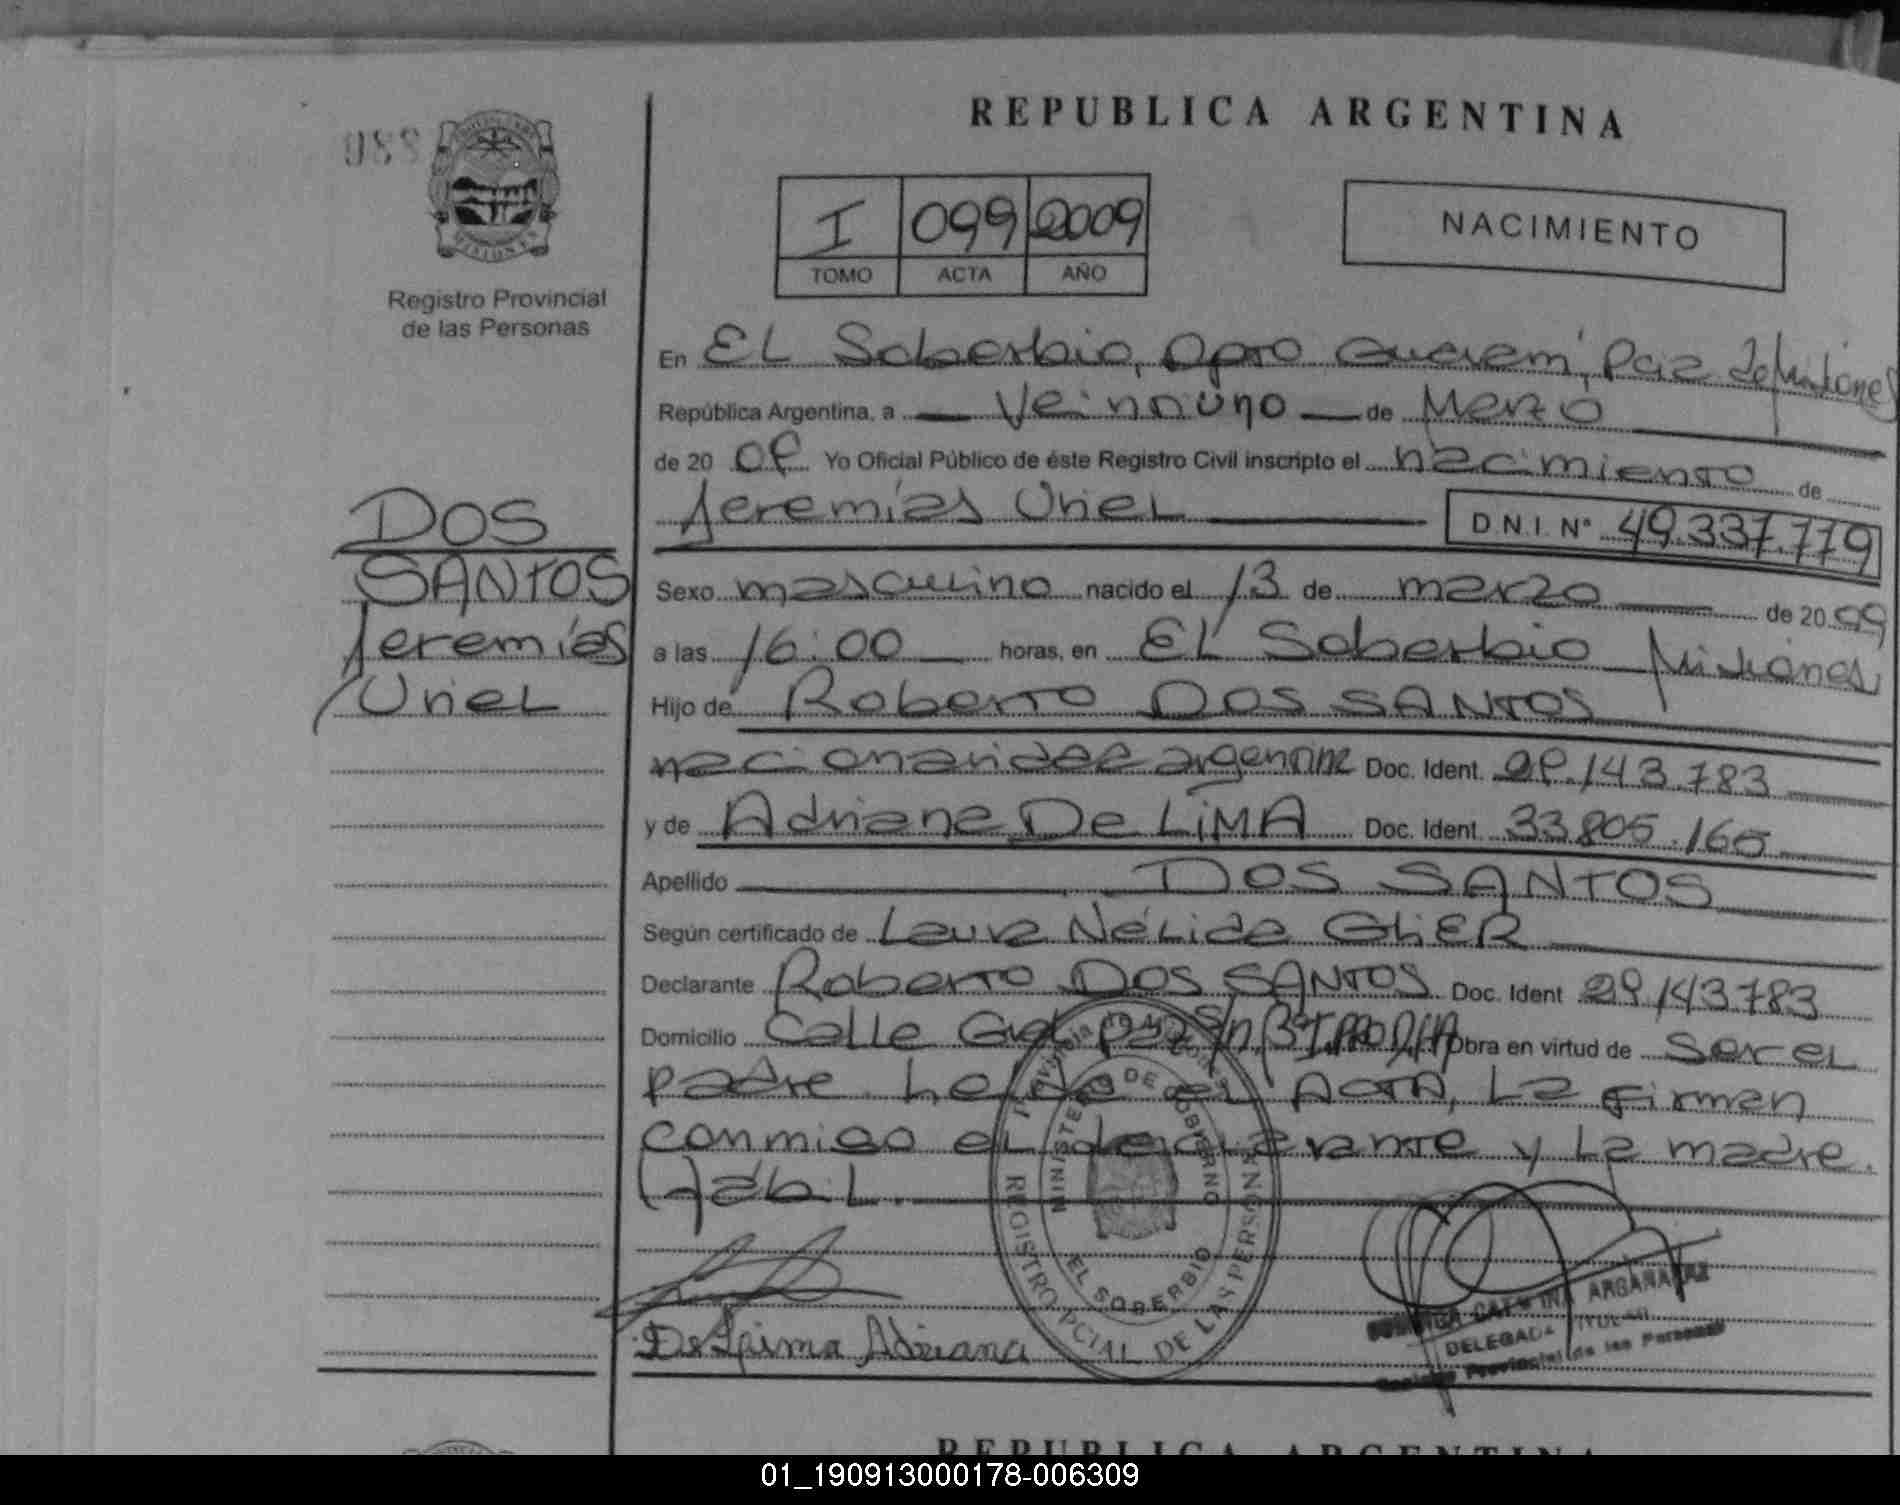 REPUBLICA ARGENTINA
088
MISIONES
Registro Provincial
de las Personas
I 099 2009
TOMO ACTA AÑO
NACIMIENTO
En EL Soberbio, Dpto Guaraní, Pcia de Misiones
República Argentina, a Veintiuno de Marzo
de 20 09 Yo Oficial Público de éste Registro Civil inscripto el nacimiento de
Jeremías Uriel D.N.I. N° 49.337.779
DOS
SANTOS
Jeremías
Uriel
Sexo masculino nacido el 13 de marzo de 20 09
a las 16:00 horas, en EL Soberbio Misiones
Hijo de Roberto DOS SANTOS
nacionalidad argentina Doc. Ident. 29.143.783
y de Adriana De LIMA Doc. Ident. 33.805.160
Apellido DOS SANTOS
Según certificado de Laura Nélida GLIER
Declarante Roberto DOS SANTOS Doc. Ident 29.143.783
Domicilio Calle Gral paz S/n, B° Obra en virtud de ser el
padre. Leída el ACTA, La Firman
conmigo el declarante y La madre.
Hábil.
Provincia de Misiones
MINISTERIO DE GOBIERNO
EL SOBERBIO
REGISTRO PCIAL DE LAS PERSONAS
De Lima Adriana
ARGAÑARAZ
DELEGADA TITULAR
Registro Provincial de las Personas
REPUBLICA ARGENTINA
01_190913000178-006309